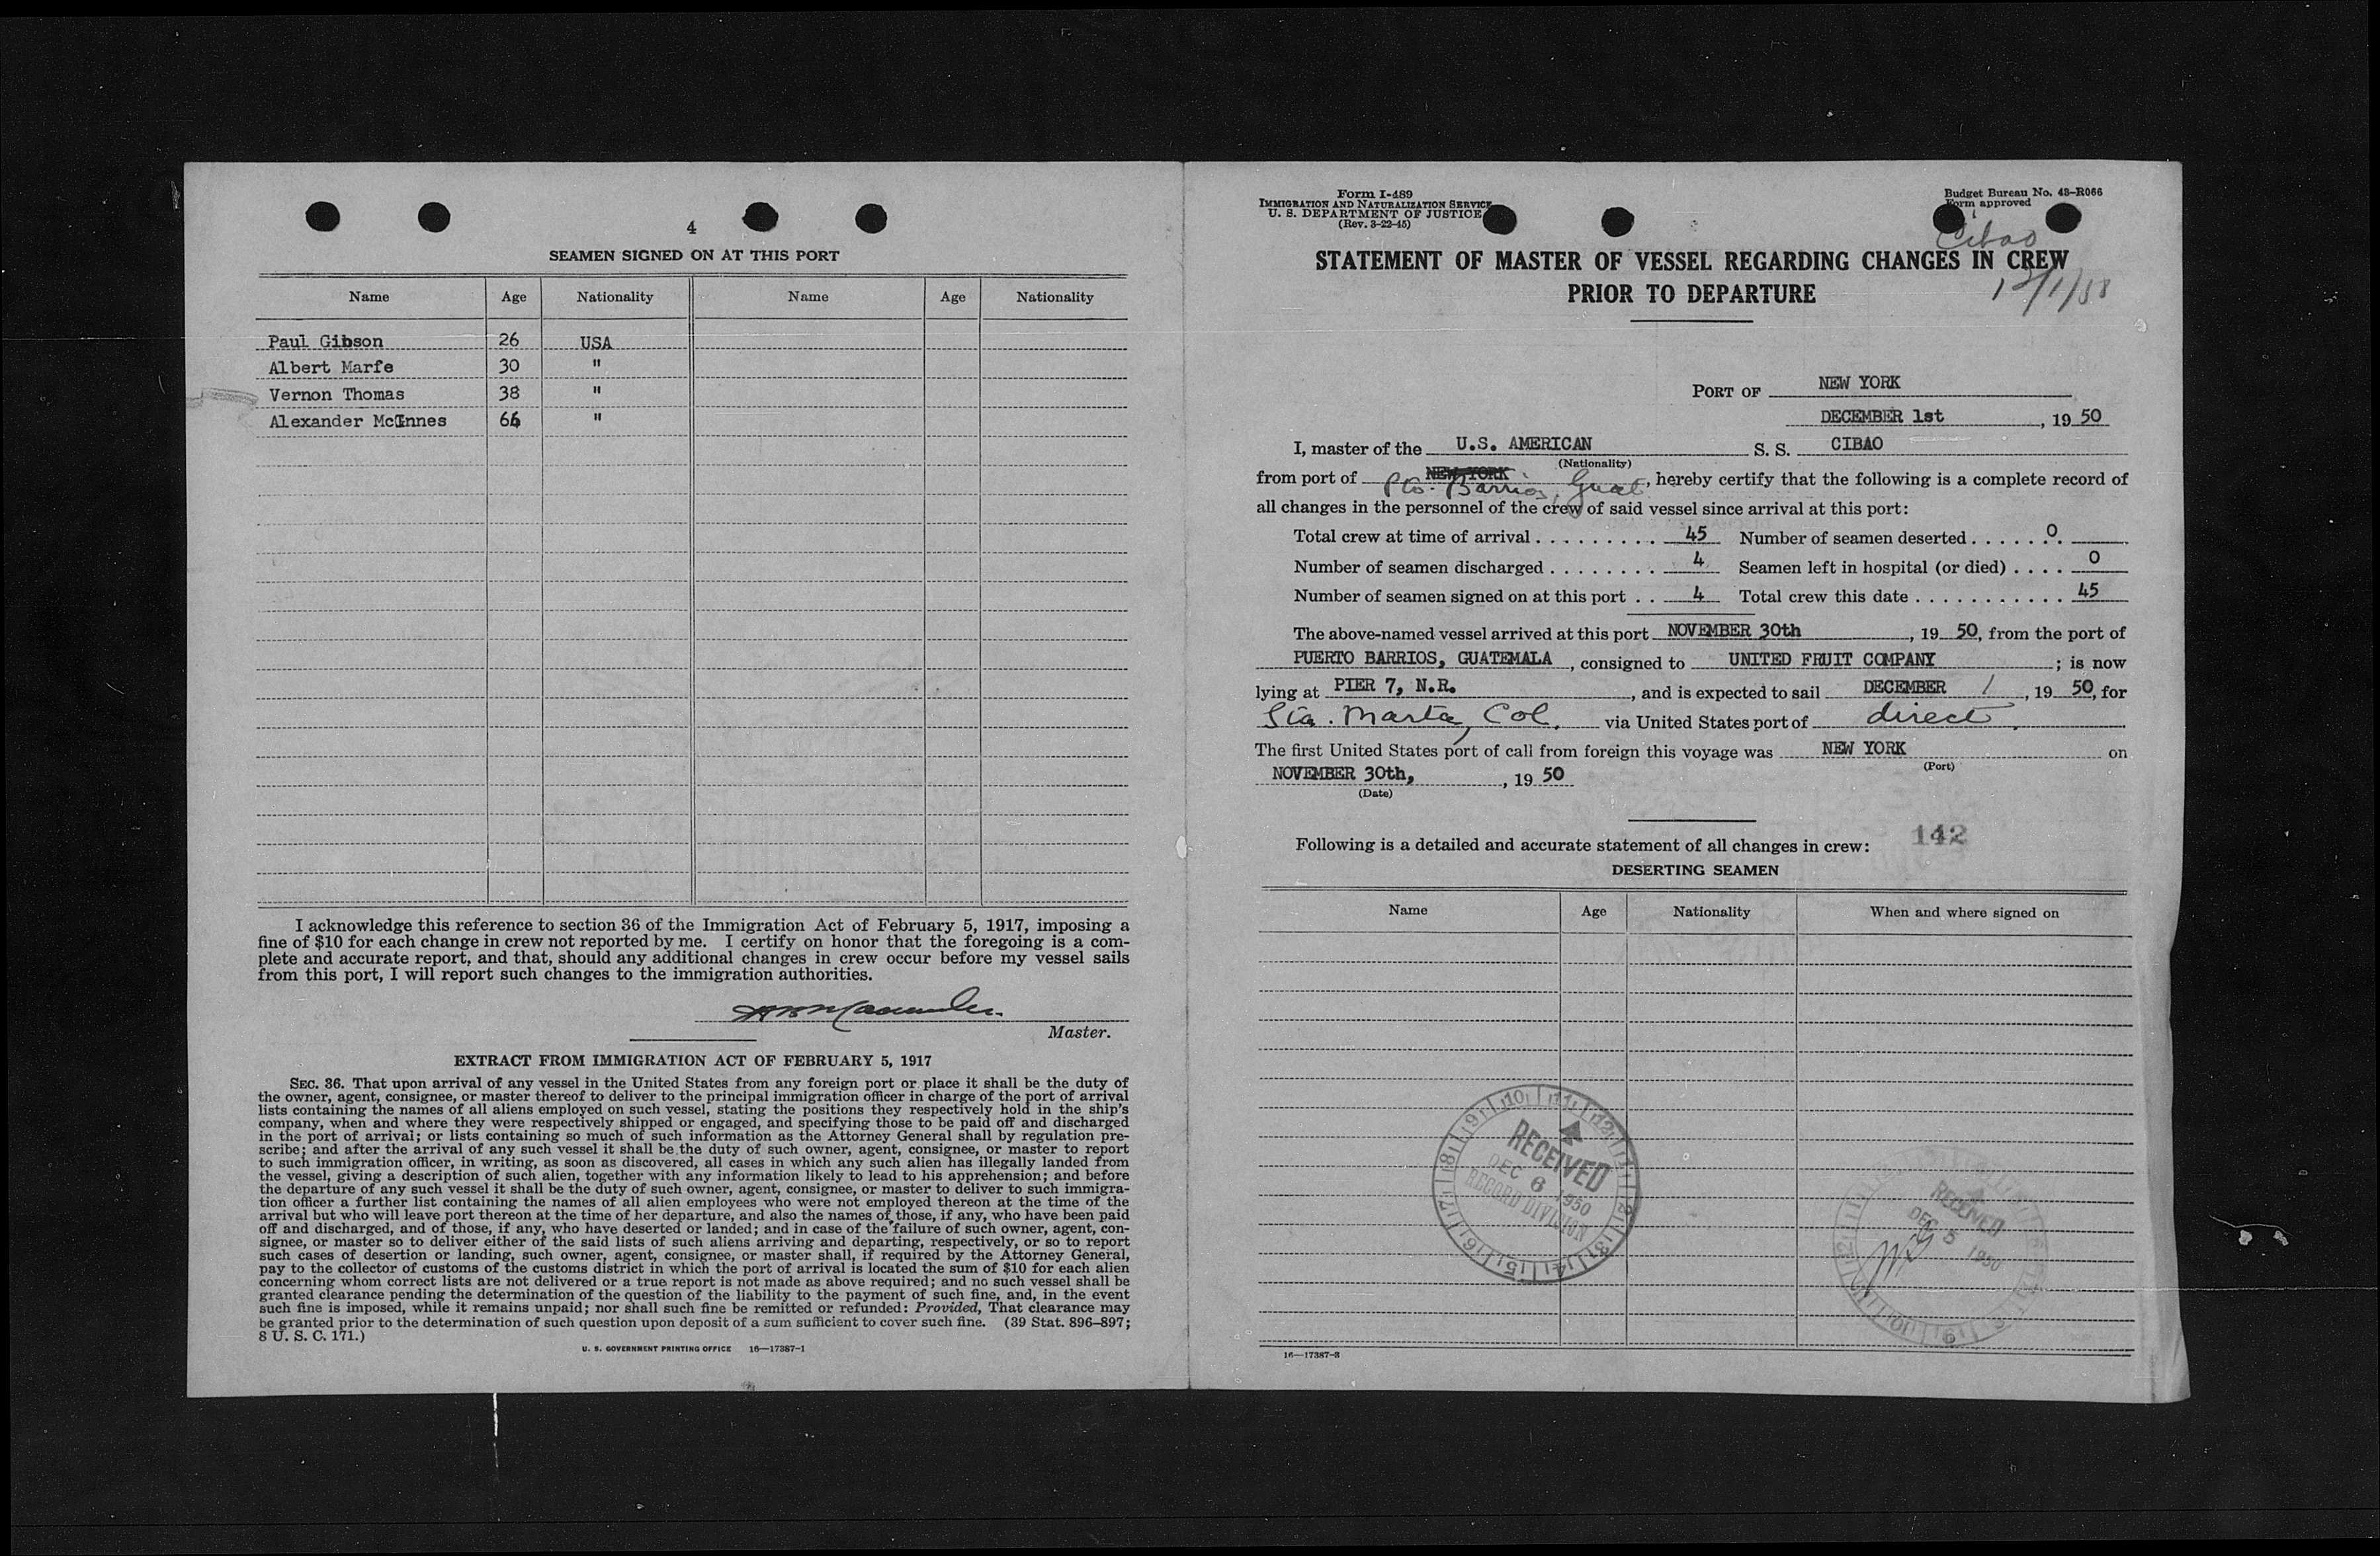 4
SEAMEN SIGNED ON AT THIS PORT
Name Age Nationality Name Age Nationality
Paul Gibson 26 USA
Albert Marfe 30 "
Vernon Thomas 38 "
Alexander McInnes 64 "
I acknowledge this reference to section 36 of the Immigration Act of February 5, 1917, imposing a
fine of $10 for each change in crew not reported by me. I certify on honor that the foregoing is a com-
plete and accurate report, and that, should any additional changes in crew occur before my vessel sails
from this port, I will report such changes to the immigration authorities.
Master.
EXTRACT FROM IMMIGRATION ACT OF FEBRUARY 5, 1917
SEC. 36. That upon arrival of any vessel in the United States from any foreign port or place it shall be the duty of
the owner, agent, consignee, or master thereof to deliver to the principal immigration officer in charge of the port of arrival
lists containing the names of all aliens employed on such vessel, stating the positions they respectively hold in the ship's
company, when and where they were respectively shipped or engaged, and specifying those to be paid off and discharged
in the port of arrival; or lists containing so much of such information as the Attorney General shall by regulation pre-
scribe; and after the arrival of any such vessel it shall be the duty of such owner, agent, consignee, or master to report
to such immigration officer, in writing, as soon as discovered, all cases in which any such alien has illegally landed from
the vessel, giving a description of such alien, together with any information likely to lead to his apprehension; and before
the departure of any such vessel it shall be the duty of such owner, agent, consignee, or master to deliver to such immigra-
tion officer a further list containing the names of all alien employees who were not employed thereon at the time of the
arrival but who will leave port thereon at the time of her departure, and also the names of those, if any, who have been paid
off and discharged, and of those, if any, who have deserted or landed; and in case of the failure of such owner, agent, con-
signee, or master so to deliver either of the said lists of such aliens arriving and departing, respectively, or so to report
such cases of desertion or landing, such owner, agent, consignee, or master shall, if required by the Attorney General,
pay to the collector of customs of the customs district in which the port of arrival is located the sum of $10 for each alien
concerning whom correct lists are not delivered or a true report is not made as above required; and no such vessel shall be
granted clearance pending the determination of the question of the liability to the payment of such fine, and, in the event
such fine is imposed, while it remains unpaid; nor shall such fine be remitted or refunded: Provided, That clearance may
be granted prior to the determination of such question upon deposit of a sum sufficient to cover such fine. (39 Stat. 896–897;
8 U. S. C. 171.)
U. S. GOVERNMENT PRINTING OFFICE 16—17387-1
Form I-489
IMMIGRATION AND NATURALIZATION SERVICE
U. S. DEPARTMENT OF JUSTICE
(Rev. 3-22-45)
Budget Bureau No. 43-R066
Form approved
Cibao
STATEMENT OF MASTER OF VESSEL REGARDING CHANGES IN CREW
PRIOR TO DEPARTURE
PORT OF NEW YORK
DECEMBER 1st, 19 50
I, master of the U.S. AMERICAN S. S. CIBAO
(Nationality)
from port of NEW YORK Pto. Barrios, Guat, hereby certify that the following is a complete record of
all changes in the personnel of the crew of said vessel since arrival at this port:
Total crew at time of arrival . . . . . . . . . . 45 Number of seamen deserted . . . . . . . 0
Number of seamen discharged . . . . . . . . 4 Seamen left in hospital (or died) . . . . 0
Number of seamen signed on at this port . . 4 Total crew this date . . . . . . . . . . . . 45
The above-named vessel arrived at this port NOVEMBER 30th, 19 50, from the port of
PUERTO BARRIOS, GUATEMALA, consigned to UNITED FRUIT COMPANY; is now
lying at PIER 7, N.R., and is expected to sail DECEMBER 1, 19 50, for
Sta. Marta, Col. via United States port of direct.
The first United States port of call from foreign this voyage was NEW YORK on
(Port)
NOVEMBER 30th, , 19 50
(Date)
142
Following is a detailed and accurate statement of all changes in crew:
DESERTING SEAMEN
Name Age Nationality When and where signed on
RECEIVED
DEC 6 1950
RECORD DIVISION
RECEIVED
DEC 5 1950
16—17387-3